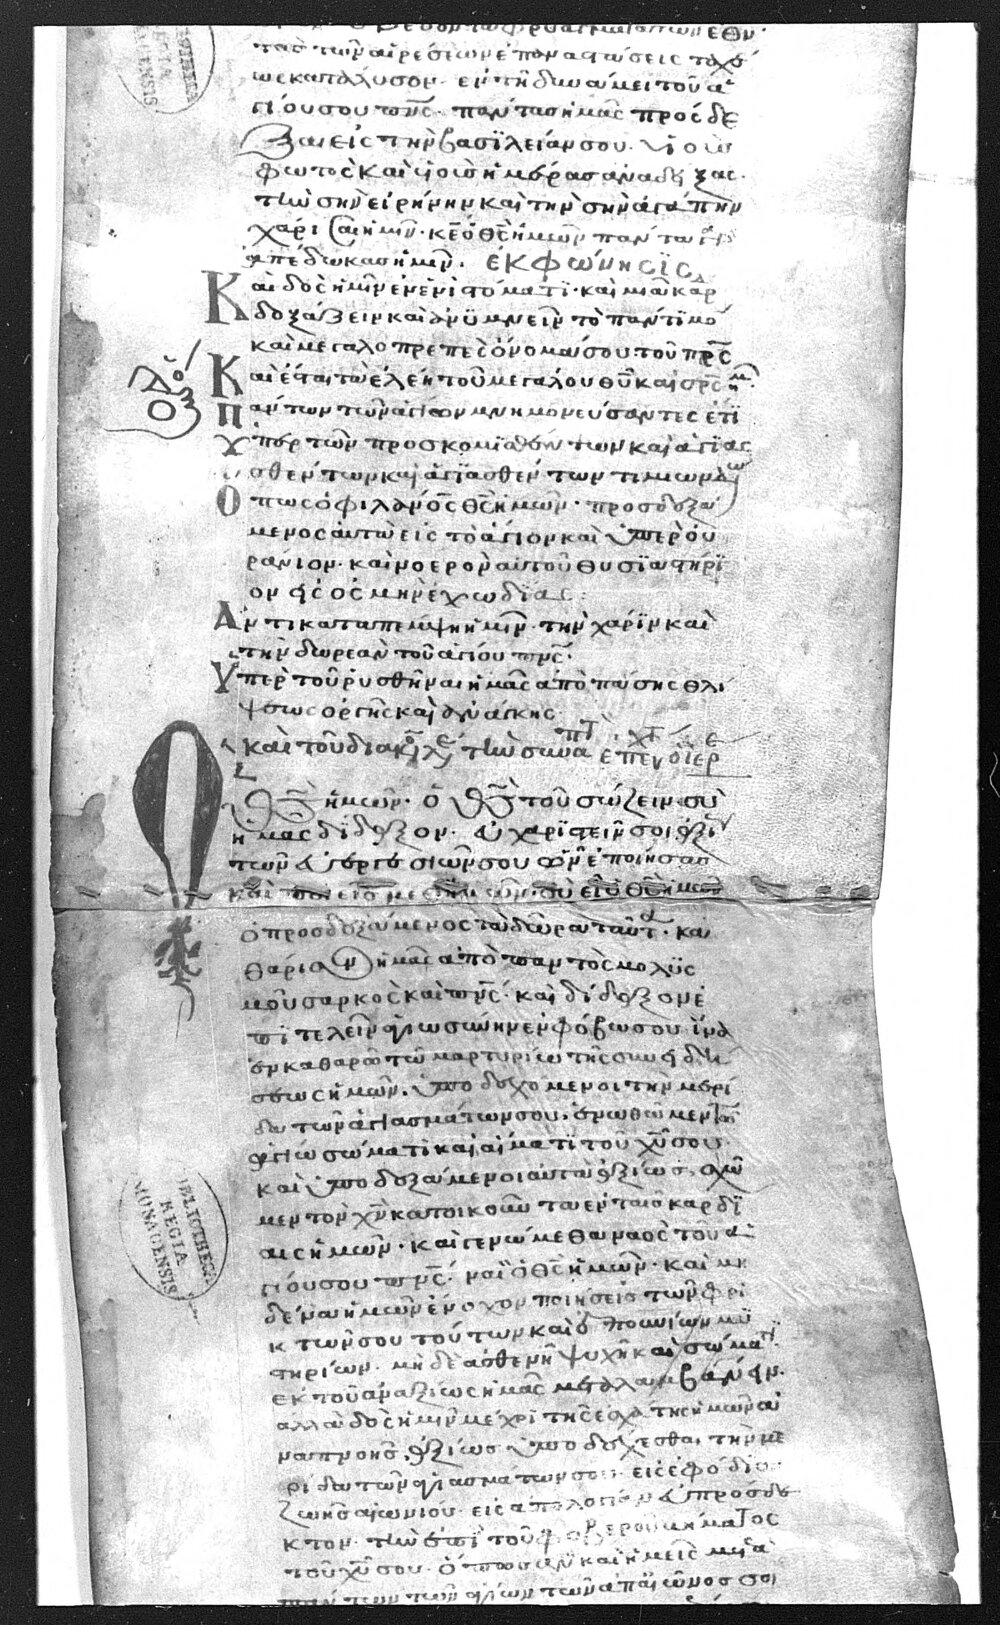 τὰς τῶν αἱρέσεων ἐπαναστάσεις ταχέ
ως κατάλυσον· ἐν τῇ δυνάμει τοῦ ἁ
γίου σου πν̅ς· πάντας ἡμᾶς πρόσδε
ξαι εἰς τὴν βασιλείαν σου· υἱοὺς
φωτὸς καὶ υἱοὺς ἡμέρας ἀναδείξας·
τὴν σὴν εἰρήνην καὶ τὴν σὴν ἀγάπην
χάρισαι ἡμῖν· κε̅ ὁ θς̅ ἡμῶν πάντα γὰρ
ἀπέδωκας ἡμῖν· ἐκφώνησις
Καὶ δὸς ἡμῖν ἐν ἑνὶ στόματι· καὶ μιᾷ καρ
δοξάζειν καὶ ἀνυμνεῖν τὸ πάντιμο
καὶ μεγαλοπρεπὲς ὄνομά σου τοῦ πρς̅
Καὶ ἔσται τὰ ἐλέη τοῦ μεγάλου θυ̅ καὶ σρ̅ς ἡμ
Πάντων τῶν ἁγίων μνημονεύσαντες ἔτι
Ὑπὲρ τῶν προσκομισθέντων καὶ ἁγιας
σθέντων καὶ ἁγιασθέντων τιμίων δώ
Ὅπως ὁ φιλάνος̅ θς̅ ἡμῶν· προσδεξά
μενος αὐτὰ εἰς τὸ ἅγιον καὶ ὑπερου
ράνιον· καὶ νοερὸν αὐτοῦ θυσιαστήρι
ον εἰς ὀσμὴν εὐωδίας:
Ἀντικαταπέμψῃ ἡμῖν· τὴν χάριν καὶ
τὴν δωρεὰν τοῦ ἁγίου πν̅ς·
Ὑπὲρ τοῦ ῥυσθῆναι ἡμᾶς ἀπὸ πάσης θλί
ψεως ὀργῆς καὶ ἀνάγκης
καὶ τοῦ διακο λε τὴν συνα ἐπεύ ὁ ἱερ
Ὁ θς̅ ἡμῶν· ὁ θς̅ τοῦ σώζειν σὺ
ἡμᾶς δίδαξον· εὐχαριστεῖν σοι ἀξίω
τῶν εὐεργεσιῶν σου ὧν ἐποίησας
καὶ ποιεῖς μεθ ἡμῶν· σὺ εἶ ὁ θς̅ ἡμῶν
ὁ προσδεξάμενος τὰ δῶρα ταῦτα· κα
θάρισον ἡμᾶς ἀπὸ παντὸς μολυς
μοῦ σαρκὸς καὶ πν̅ς· καὶ δίδαξον ἐ
πιτελεῖν ἁγιωσύνην ἐν φόβῳ σου ἵνα
ἐν καθαρῷ τῷ μαρτυρίῳ τῆς συνειδή
σεως ἡμῶν· ὑποδεχόμενοι τὴν μερί
δα τῶν ἁγιασμάτων σου· ἑνωθῶμεν τῷ
ἁγίῳ σώματι καὶ αἵματι τοῦ χυ̅ σου·
καὶ ὑποδεξάμενοι αὐτὰ ἀξίως· σχῶ
μεν τὸν χν̅ κατοικοῦντα ἐν ταῖς καρδί
αις ἡμῶν· καὶ γενώμεθα ναὸς τοῦ ἁ
γίου σου πν̅ς· ναὶ ὁ θς̅ ἡμῶν· καὶ μη
δένα ἡμῶν ἔνοχον ποιήσεις τῶν φρι
κτῶν σου τούτων καὶ ἐπουνίων μυ
στηρίων· μὴ δὲ ἀσθενῆ ψυχῇ καὶ σώματι
ἐκ τοῦ ἀναξίως ἡμᾶς μεταλαμβάνειν·
ἀλλὰ δὸς ἡμῖν μέχρι τῆς ἐσχάτης ἡμῶν ἀ
ναπνοῆς ἀξίως ὑποδέχεσθαι τὴν με
ρίδα τῶν ἁγιασμάτων σου εἰς ἐφόδιον
ζωῆς αἰωνίου· εἰς ἀπολογίαν εὐπρόσδε
κτον· τὴν ἐπὶ τοῦ φοβεροῦ βήματος
τοῦ χυ̅ σου· ὅπως ἂν καὶ ἡμεῖς μετὰ
πάντων τῶν ἁγίων τῶν ἀπ αἰῶνός σοι
BIBLIOTHECA
REGIA
MONACENSIS